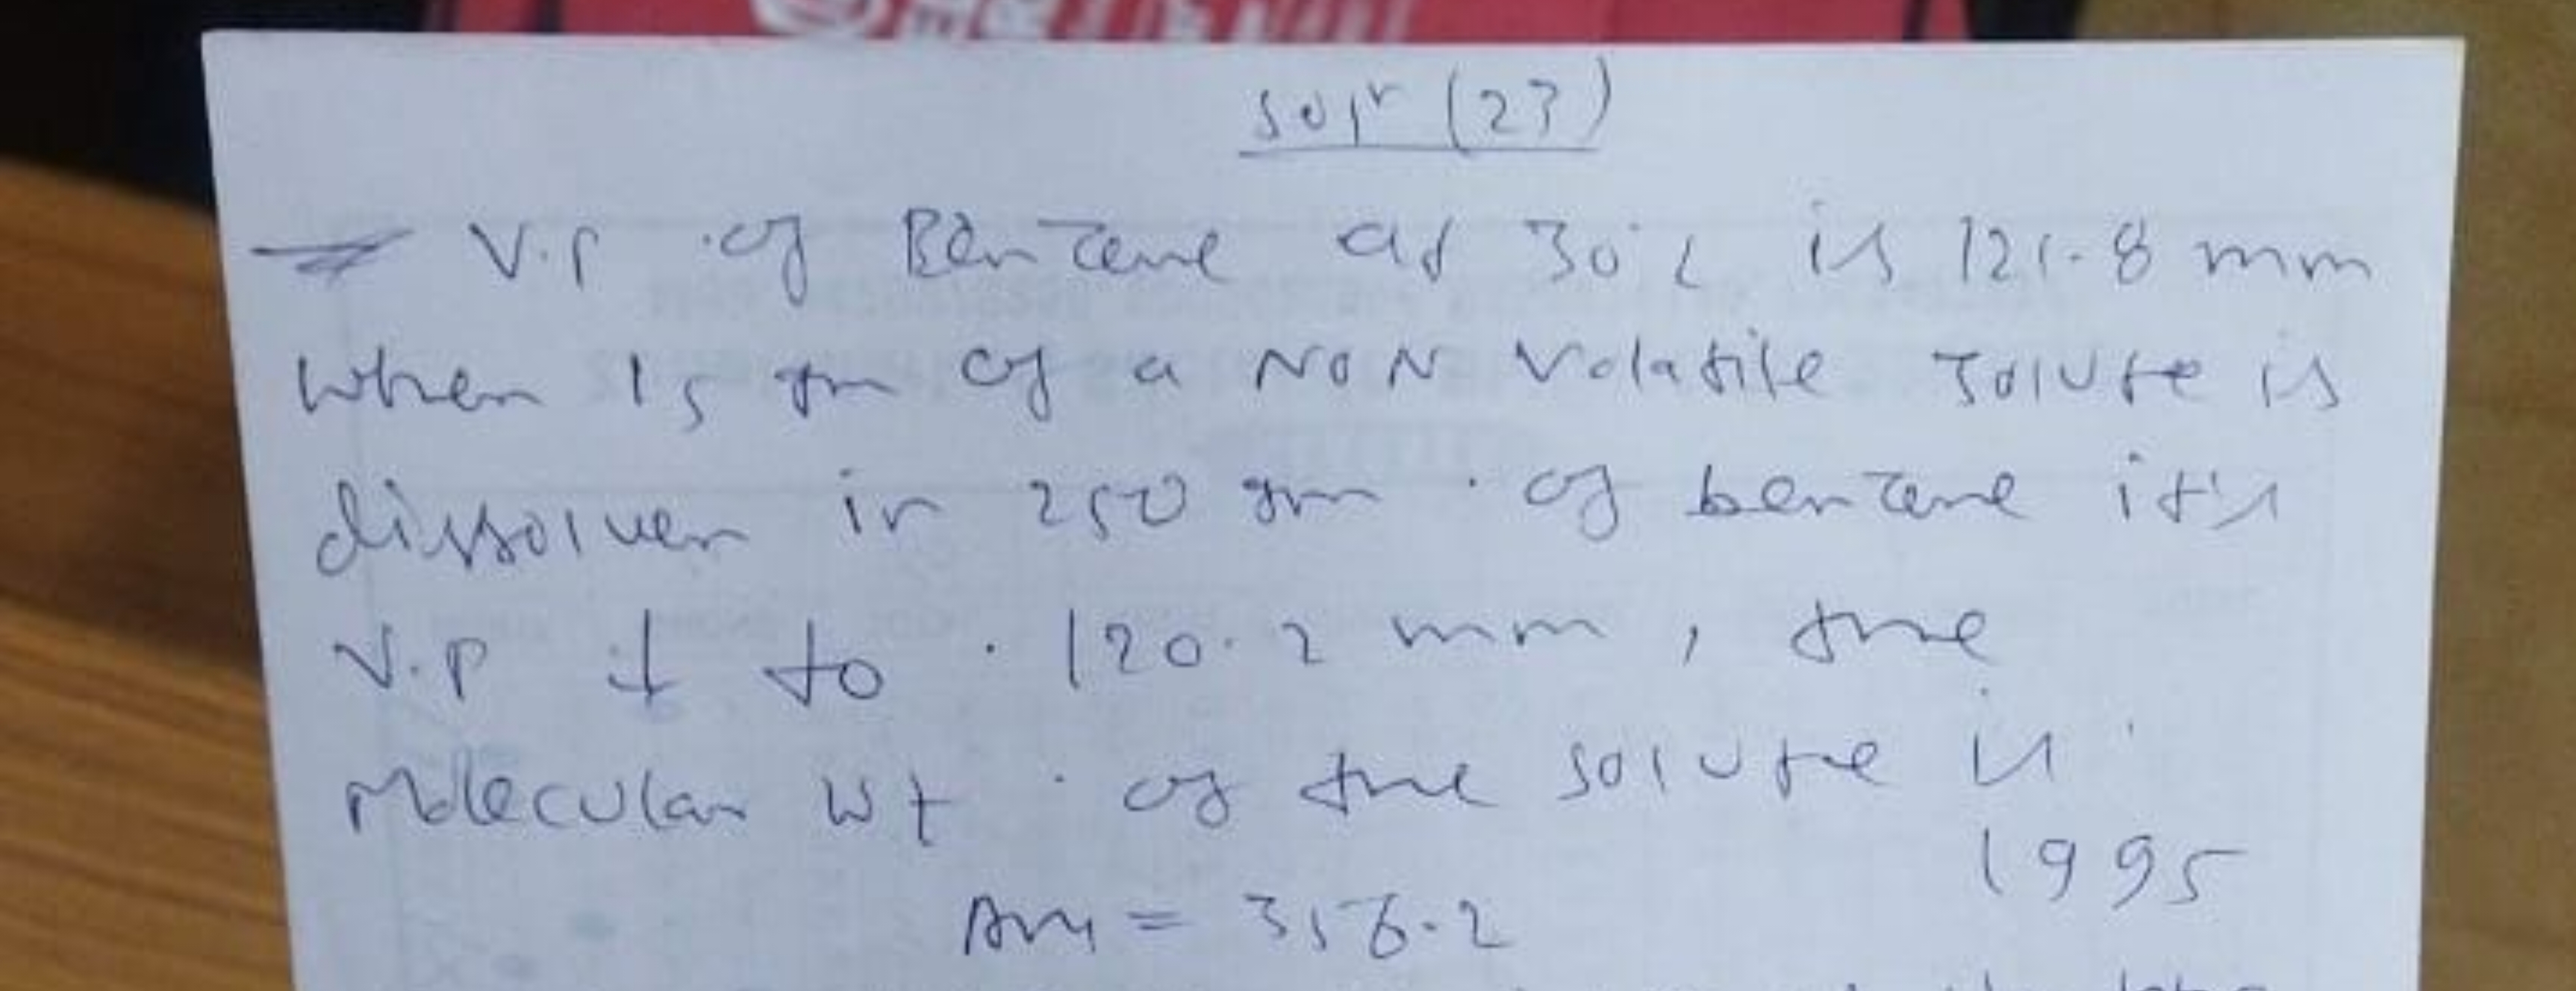 Solⁿ (23)
V.P of Benzene at 30°C is 121.8 mm
when 15 gm of a NON Volatile solute is
dissolved in 250 gm of benzene it's
V.P ↓ to 120.2 mm, the
Molecular wt of the solute is
1995
Ans = 356.2